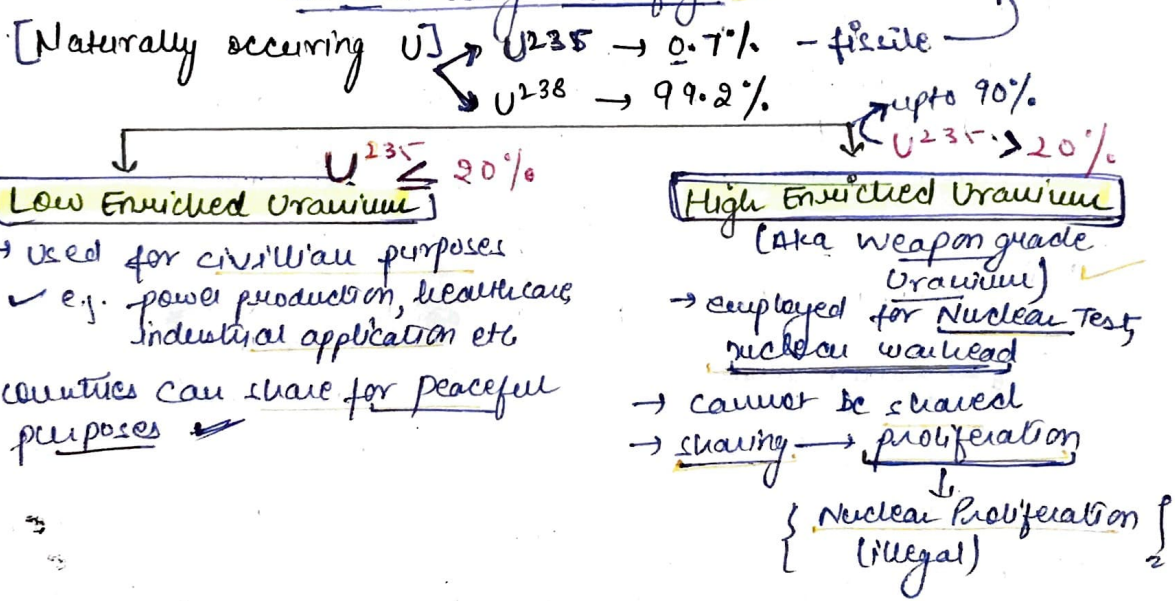 [Naturally occuring U] U²³⁵ → 0.7% - fissile
U²³⁸ → 99.2%
upto 90%
U²³⁵ ≤ 20%
U²³⁵ > 20%
Low Enriched Uranium
→ used for civillian purposes
e.g. power production, healthcare,
industrial application etc
countries can share for peaceful
purposes
High Enriched Uranium
(Aka weapon grade
Uranium)
→ employed for Nuclear Test,
nuclear warhead
→ cannot be shared
→ sharing → proliferation
{ Nuclear Proliferation }
(illegal)